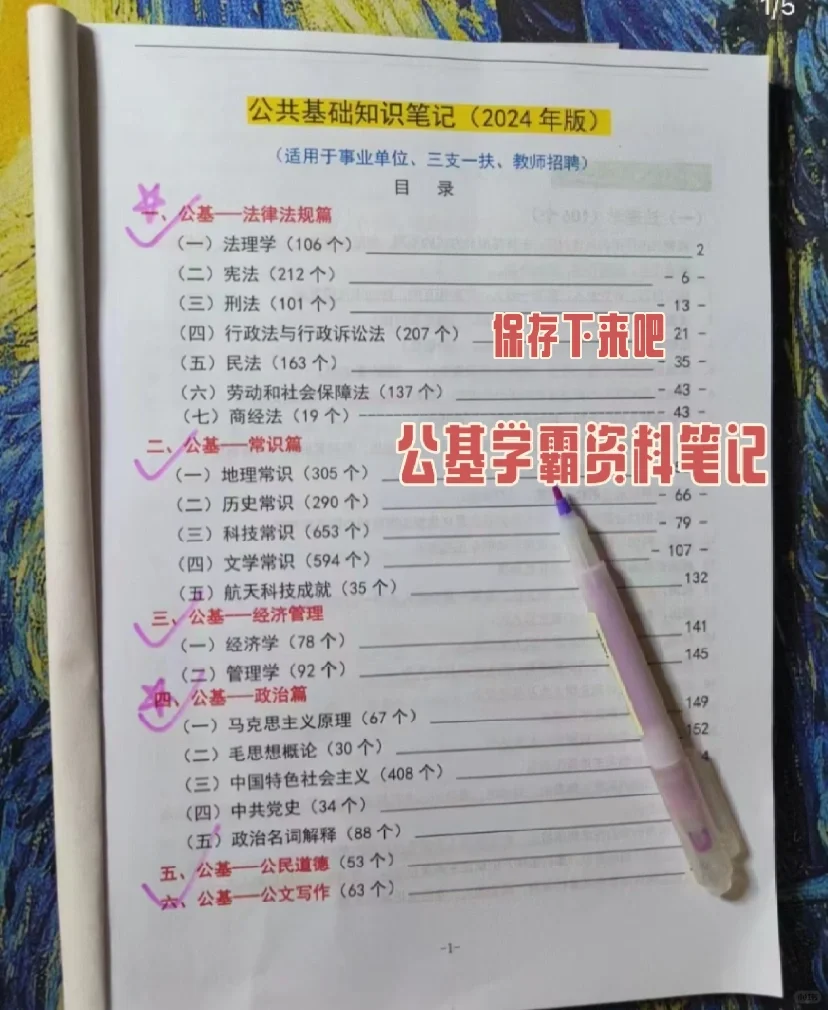 1/5
公共基础知识笔记（2024 年版）
（适用于事业单位、三支一扶、教师招聘）
目 录
一、公基——法律法规篇
（一）法理学（106 个） 2
（二）宪法（212 个） - 6 -
（三）刑法（101 个） - 13 -
（四）行政法与行政诉讼法（207 个） 21 -
保存下来吧
（五）民法（163 个） - 35 -
（六）劳动和社会保障法（137 个） - 43 -
（七）商经法（19 个） - 43 -
二、公基——常识篇
公基学霸资料笔记
（一）地理常识（305 个）
（二）历史常识（290 个） - 66 -
（三）科技常识（653 个） - 79 -
（四）文学常识（594 个） - 107 -
（五）航天科技成就（35 个） 132
三、公基——经济管理
（一）经济学（78 个） 141
（二）管理学（92 个） 145
四、公基——政治篇
（一）马克思主义原理（67 个） 149
（二）毛思想概论（30 个） 152
（三）中国特色社会主义（408 个） 4
（四）中共党史（34 个）
（五）政治名词解释（88 个）
五、公基——公民道德（53 个）
六、公基——公文写作（63 个）
-1-